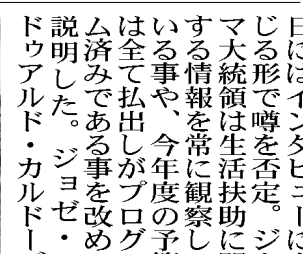 日にはインタビューに
じる形で噂を否定。ジ
マ大統領は生活扶助に
する情報を常に観察し
いる事や、今年度の予
は全て払出しがプログ
ム済みである事を改め
説明した。ジョゼ・
ドゥアルド・カルドー